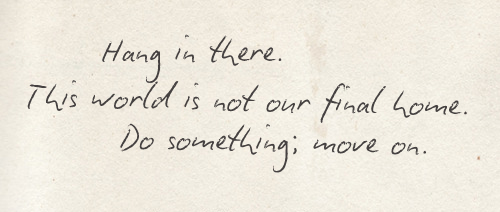 Hang in there.
This world is not our final home.
Do something; move on.